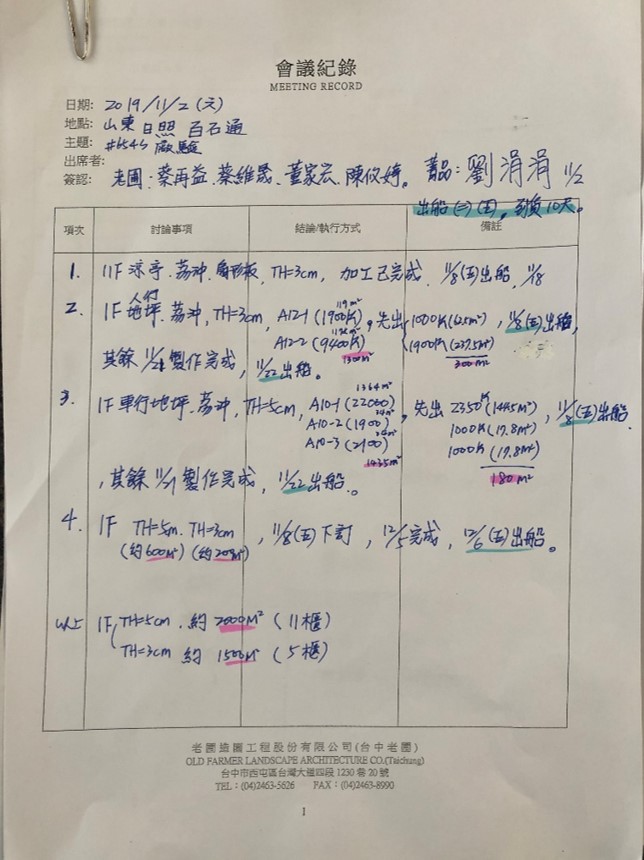 會議紀錄
MEETING RECORD
日期: 2019/11/2 (六)
地點: 山東日照百石通
主題: #6545 廠驗
出席者:
簽認: 老圃: 蔡再益、蔡維晟、董家宏、陳攸婷。 菁品: 劉涓涓 11/2
出船(二)(五), 到貨10天。
項次 討論事項 結論/執行方式 備註
1. 11F 涼亭、荔沖、扇形板, TH=3cm, 加工已完成, 11/8(五)出船, 11/18
2. 1F 人行地坪、荔沖, TH=3cm, A12-1 (1900片) 119m², 先出 1000片(62.5m²), 11/8(五)出船,
A12-2 (9400片) 1300m² 1900片(237.5m²) 300m²
其餘 11/21 製作完成, 11/22 出船。
3. 1F 車行地坪、荔沖, TH=5cm, A10-1 (22000) 1364m², 先出 2350片(144.5m²), 11/8(五)出船
A10-2 (1900) 1000片(17.8m²)
A10-3 (2100) 1000片(17.8m²)
1435m² 180m²
, 其餘 11/21 製作完成, 11/22 出船。
4. 1F TH=5cm、TH=3cm, 11/8(五)下訂, 12/5完成, 12/6(五)出船。
(約600m²) (約200m²)
以上 1F TH=5cm、約2000M² (11櫃)
TH=3cm 約1500M² (5櫃)
老圃造園工程股份有限公司(台中老圃)
OLD FARMER LANDSCAPE ARCHITECTURE CO.(Taichung)
台中市西屯區台灣大道四段 1230 巷 20 號
TEL:(04)2463-5626 FAX:(04)2463-8990
1